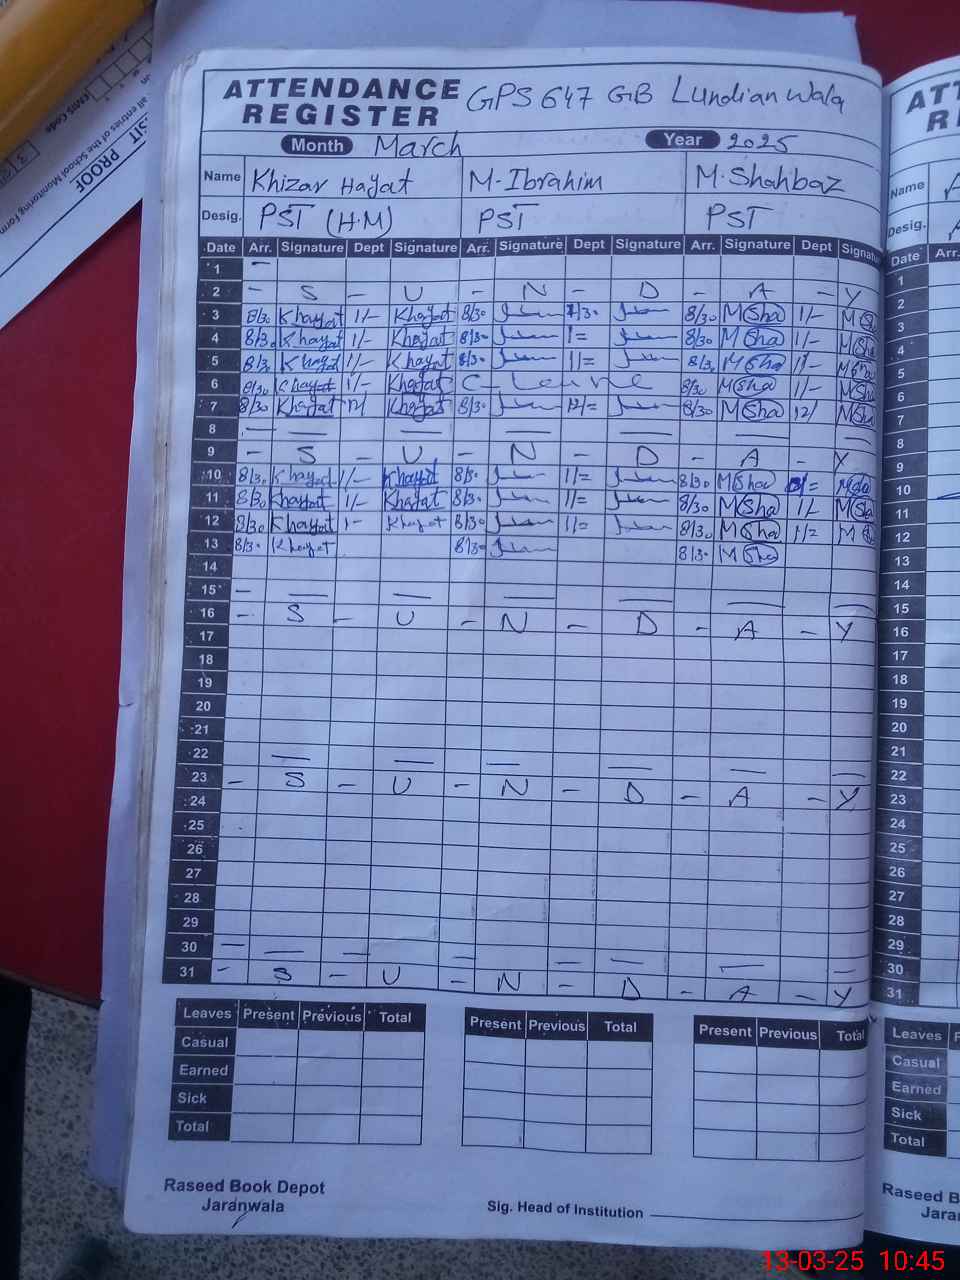 ATTENDANCE REGISTER GPS 647 GB Lundianwala
Month March Year 2025
Name Khizar Hayat M-Ibrahim M.Shahbaz
Desig. PST (H.M) PST PST
Date Arr. Signature Dept Signature Arr. Signature Dept Signature Arr. Signature Dept Signature
1 —
2 - S - U - N - D - A - Y
3 8/30 Khayat 1/- Khayat 8/30 8/30 M Sha 1/- M Sha
4 8/30 Khayat 1/- Khayat 8/30 1= 8/30 M Sha 1/- M Sha
5 8/30 Khayat 1/- Khayat 8/30 1/= 8/30 M Sha 1/- M Sha
6 8/30 Khayat 1/- Khayat C-Leave 8/30 M Sha 1/- M Sha
7 8/30 Khayat 12/ Khayat 8/30 12/= 8/30 M Sha 12/ M Sha
8 — — — — — — —
9 - S - U - N - D - A - Y
10 8/30 Khayat 1/- Khayat 8/30 1/= 8/30 M Sha M Sha
11 8/30 Khayat 1/- Khayat 8/30 1/= 8/30 M Sha 1/- M Sha
12 8/30 Khayat 1- Khayat 8/30 1/= 8/30 M Sha 1/= M
13 8/30 Khayat 8/30 8/30 M Sha
14
15 — — — — — — —
16 - S - U - N - D - A - Y
17
18
19
20
21
22 — — — — — —
23 - S - U - N - D - A - Y
24
25
26
27
28
29
30 — — — — — — — —
31 - S - U - N - D - A - Y
Leaves Present Previous Total Present Previous Total Present Previous Total
Casual
Earned
Sick
Total
Raseed Book Depot
Jaranwala
Sig. Head of Institution
ATT
R
Name
Desig.
Date Arr.
1
2
3
4
5
6
7
8
9
10
11
12
13
14
15
16
17
18
19
20
21
22
23
24
25
26
27
28
29
30
31
Leaves
Casual
Earned
Sick
Total
Raseed B
Jara
PROOF
EMIS Code
all entries of the School Monitoring Form
13-03-25 10:45